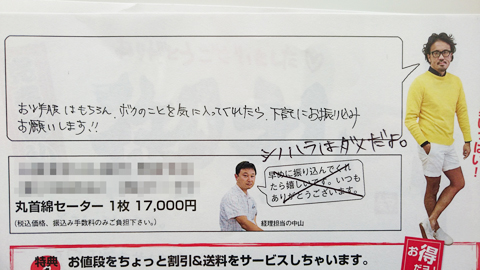 お洋服はもちろん、ボクのことを気に入ってくれたら、下記にお振り込み
お願いします!!
シノハラはダメだよ。
早めに振り込んでくれ
たら嬉しいです。いつも
ありがとうございます。
丸首綿セーター 1枚 17,000円
(税込価格、振込み手数料のみご負担下さい。)
経理担当の中山
っぱい!
お得
特典
お値段をちょっと割引&送料をサービスしちゃいます。